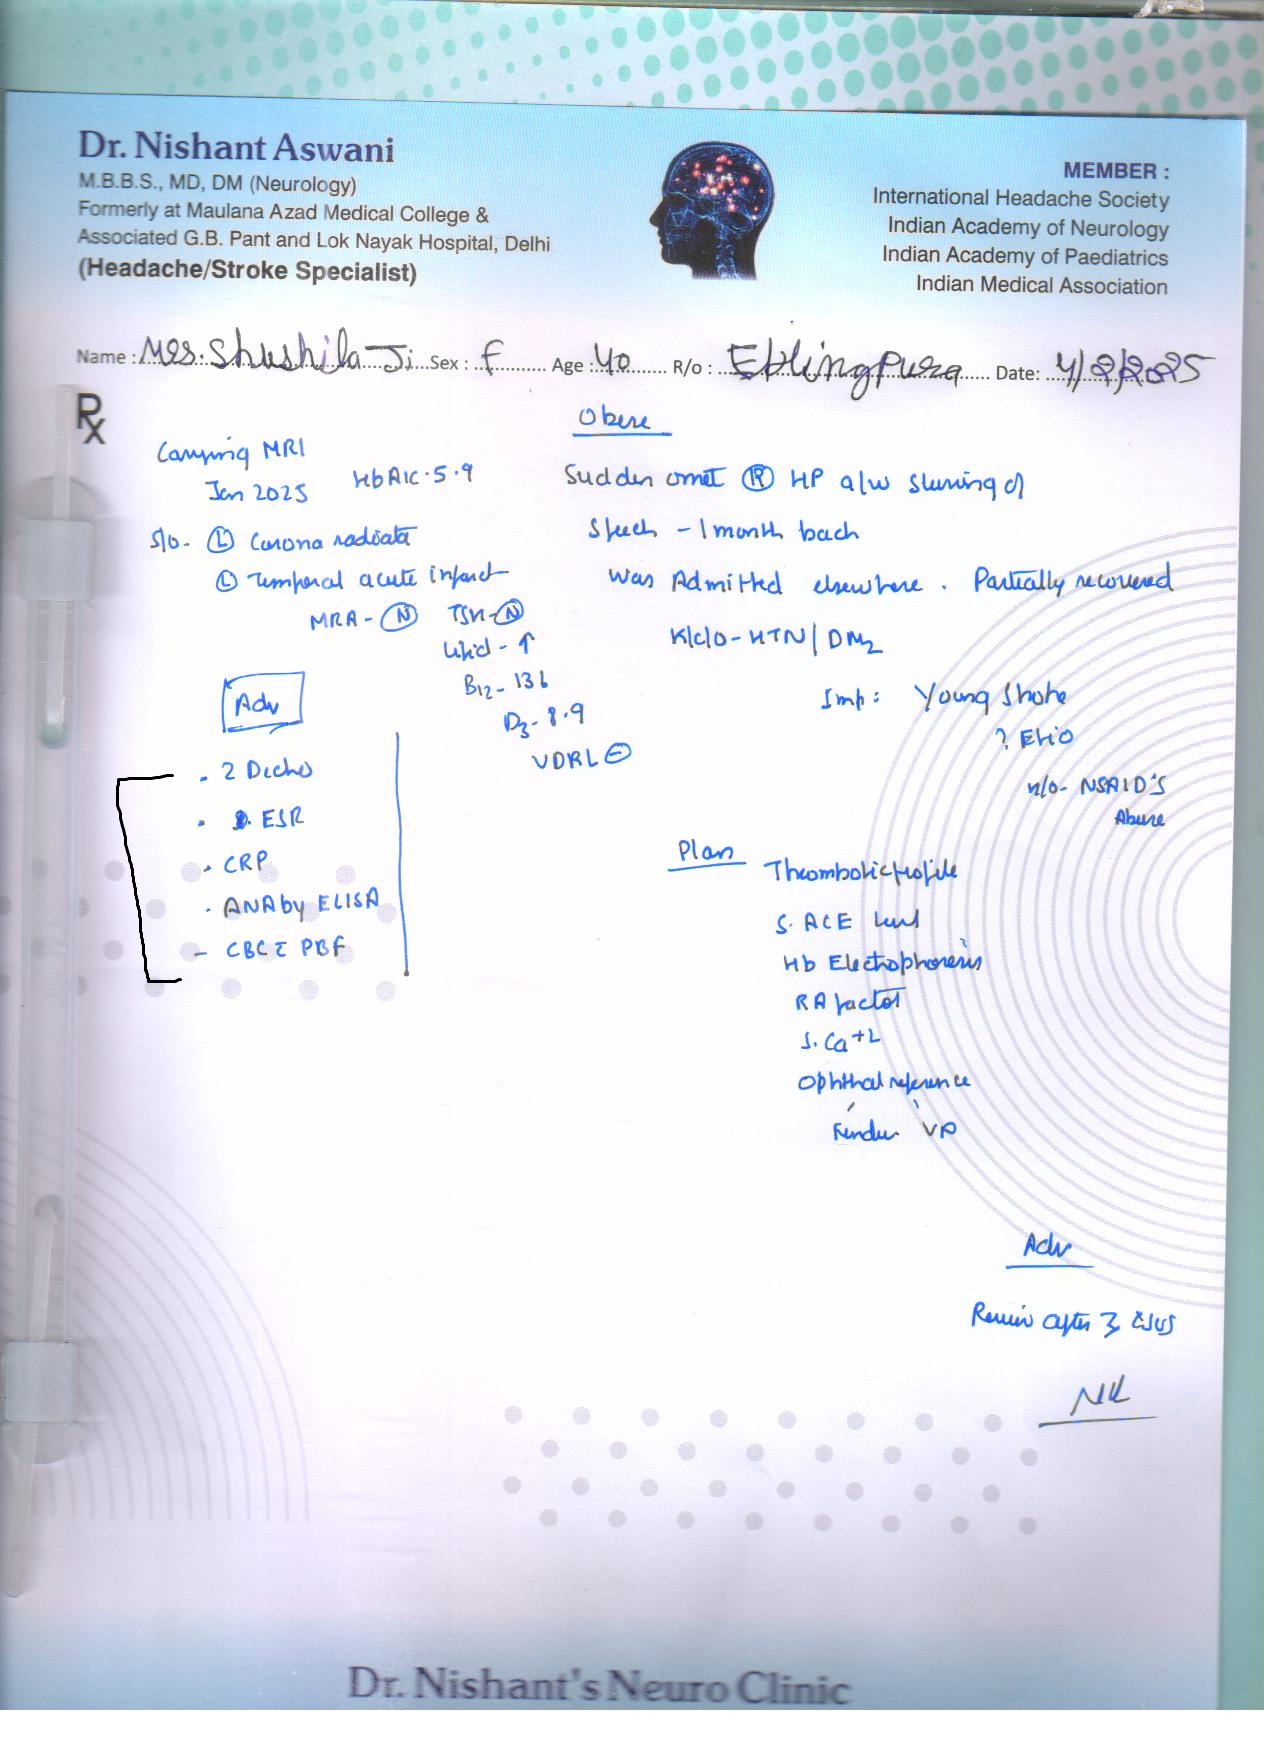 Dr. Nishant Aswani
M.B.B.S., MD, DM (Neurology)
Formerly at Maulana Azad Medical College &
Associated G.B. Pant and Lok Nayak Hospital, Delhi
(Headache/Stroke Specialist)
MEMBER :
International Headache Society
Indian Academy of Neurology
Indian Academy of Paediatrics
Indian Medical Association
Name : Mrs. Shushila Ji Sex : F Age : 40 R/o : Date: 4/2/2025
Rx
Carrying MRI
Jan 2025
HbA1c - 5.9
S/o - (L) Corona radiata
(L) Temporal acute infarct
MRA - (N) TSH - (N)
Lipid - ↑
B12 - 136
D3 - 8.9
VDRL (-)
Obese
Sudden onset (R) HP a/w slurring of
speech - 1 month back
Was Admitted elsewhere. Partially recovered
K/c/o - HTN / DM2
Imp : Young Stroke
? Etio
h/o - NSAID's
Abuse
Adv
. 2 Decho
. ESR
. CRP
. ANA by ELISA
- CBC c PBF
Plan
Thrombotic profile
S. ACE level
Hb Electrophoresis
RA factor
S. Ca+2
Ophthal reference
Fundus VA
Adv
Review after 3 days
Dr. Nishant's Neuro Clinic